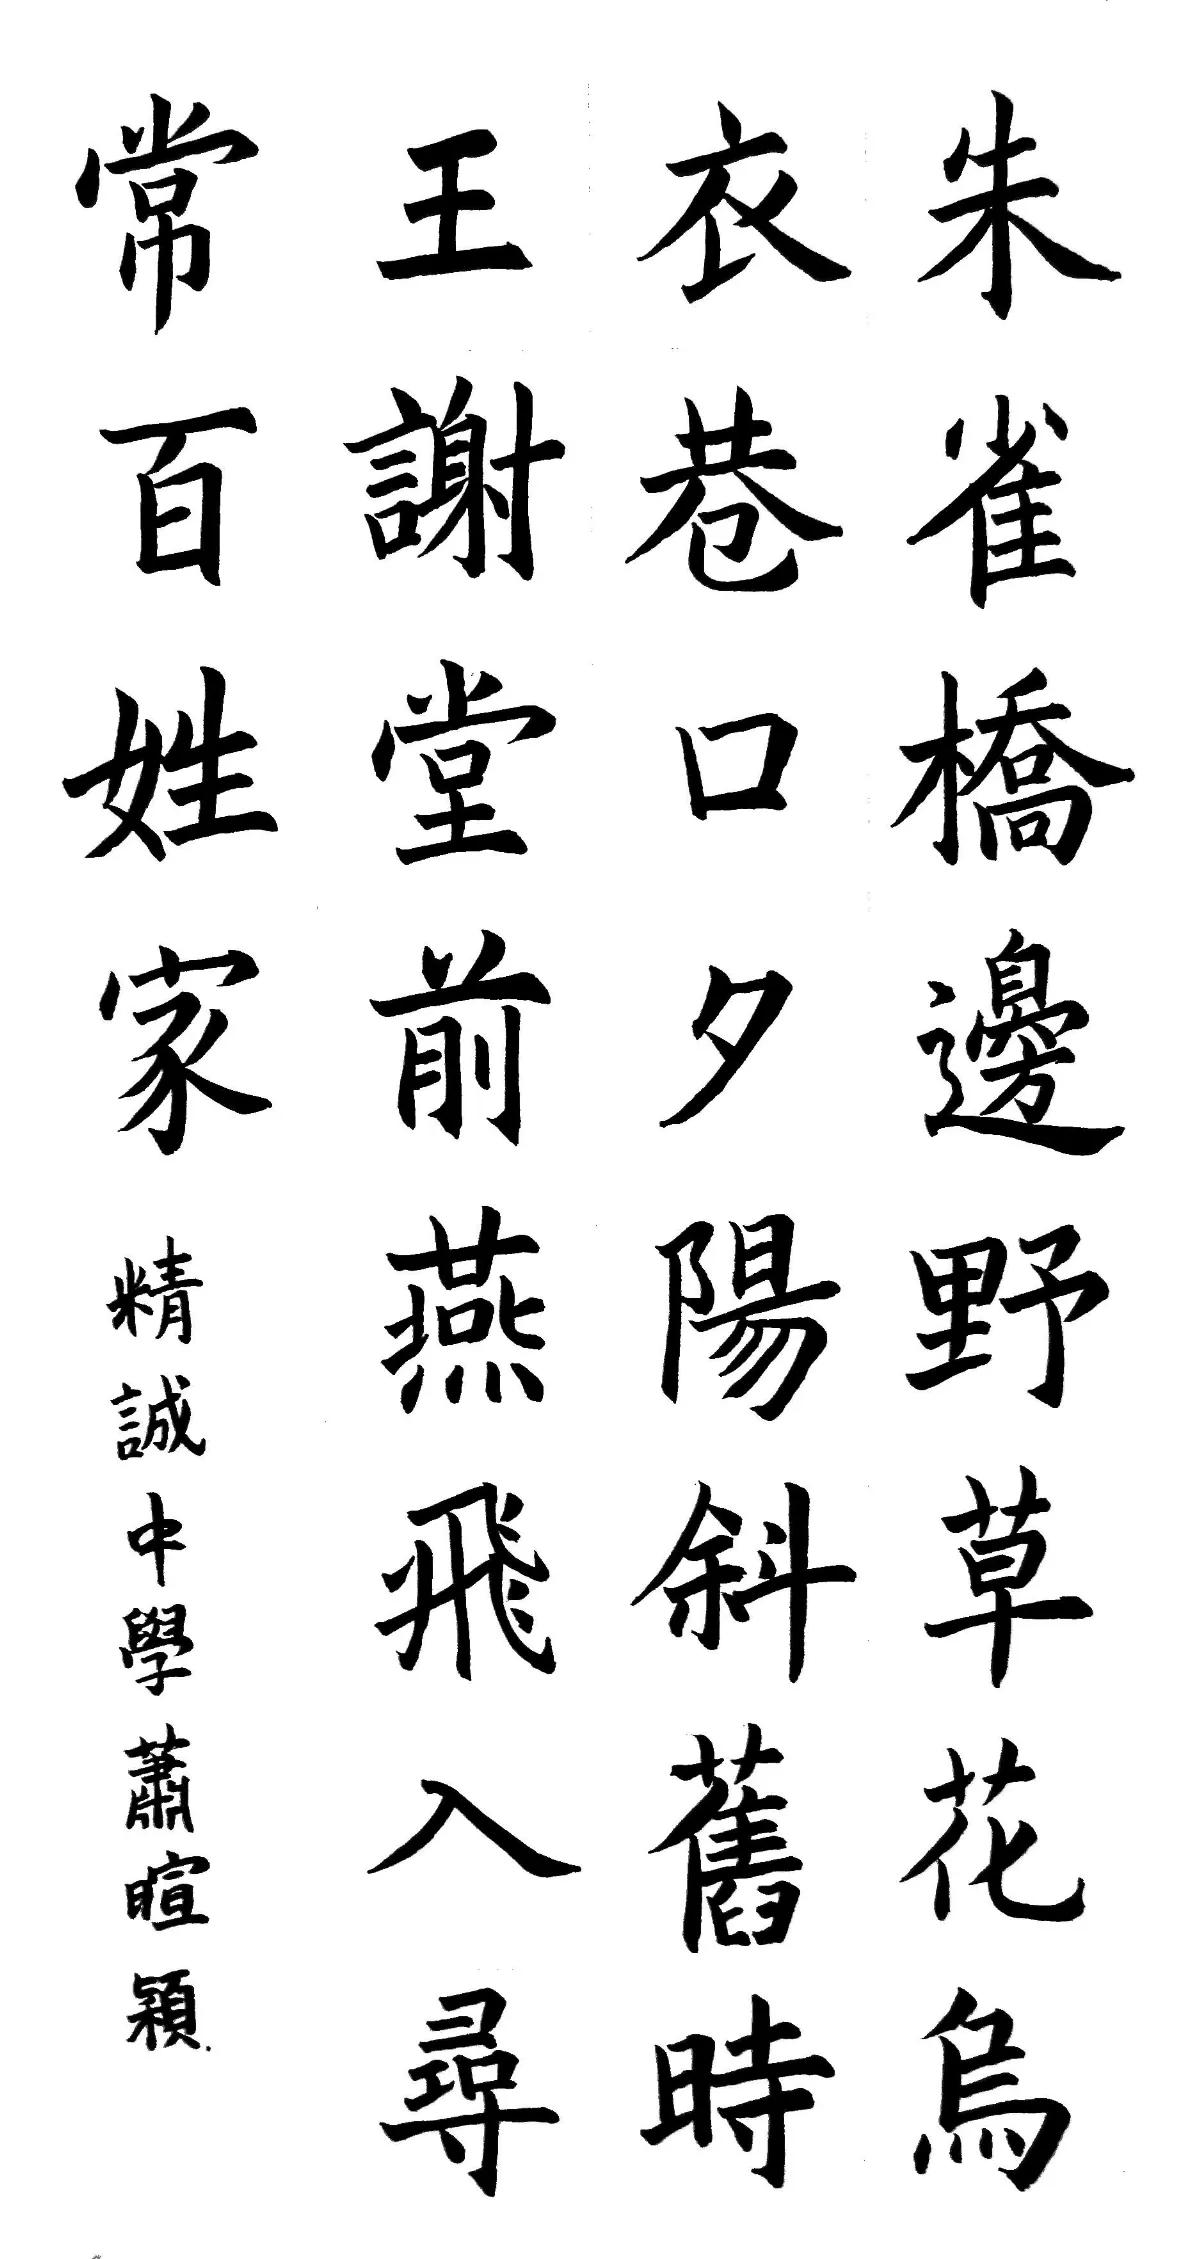 朱雀橋邊野草花烏
衣巷口夕陽斜舊時
王謝堂前燕飛入尋
常百姓家
精誠中學蕭暄穎